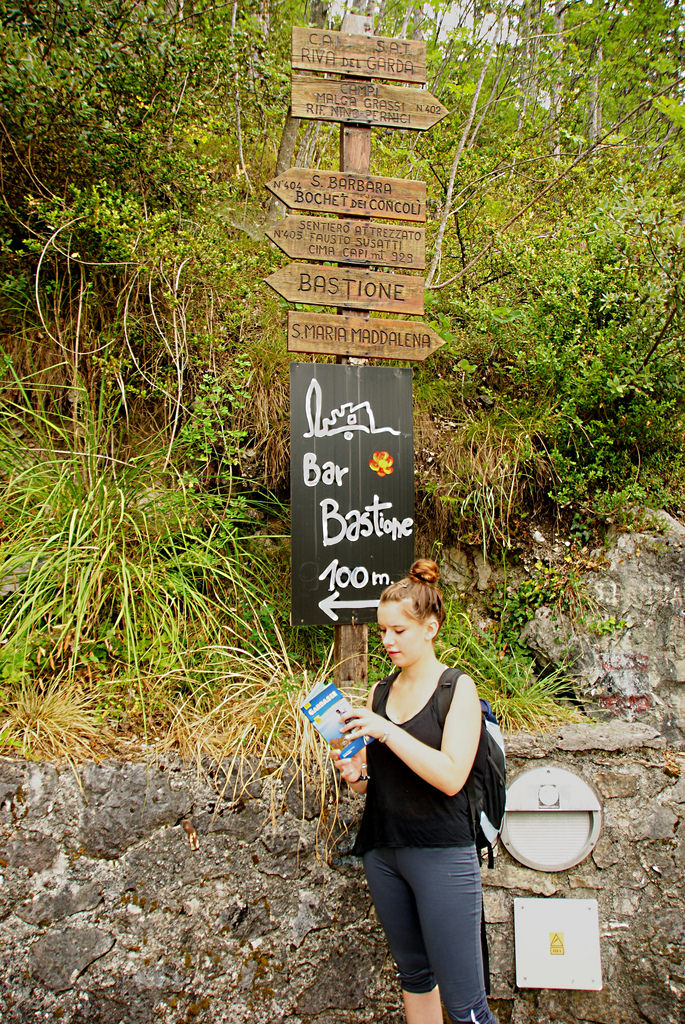 C.A.I. S.A.T.
RIVA DEL GARDA
CAMPI
MALGA GRASSI N.402
RIF. NINO PERNICI
N°404 S. BARBARA
BOCHET DEI CONCOLÌ
SENTIERO ATTREZZATO
N°405 FAUSTO SUSATTI
CIMA CAPI mt 929
BASTIONE
S. MARIA MADDALENA
Bar
Bastione
100 m.
GARDASEE